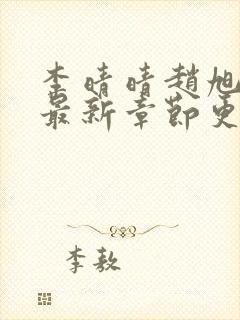 李晴晴趙旭
最新章節更
李敖